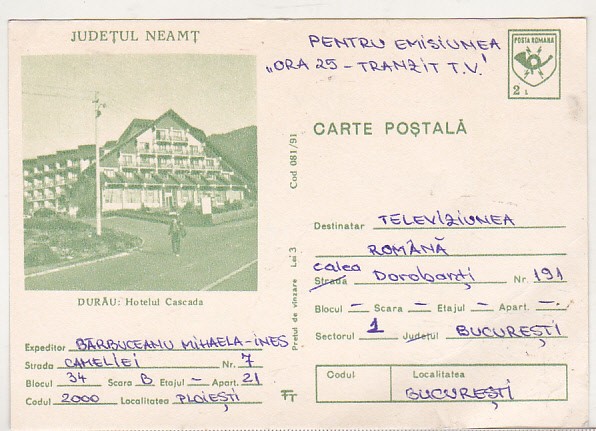 JUDEȚUL NEAMȚ
DURĂU: Hotelul Cascada
Expeditor BĂRBUCEANU MIHAELA-INES
Strada CAMELIEI Nr. 7
Blocul 34 Scara B Etajul – Apart. 21
Codul 2000 Localitatea PLOIEȘTI
Cod 081/91
Prețul de vînzare Lei 3
PENTRU EMISIUNEA
„ORA 25 – TRANZIT T.V.”
POSTA ROMANA
2 L
CARTE POȘTALĂ
Destinatar TELEVIZIUNEA
ROMÂNĂ
calea
Strada Dorobanți Nr. 191
Blocul – Scara – Etajul – Apart. –.
Sectorul 1 Județul BUCUREȘTI
Codul Localitatea
BUCUREȘTI